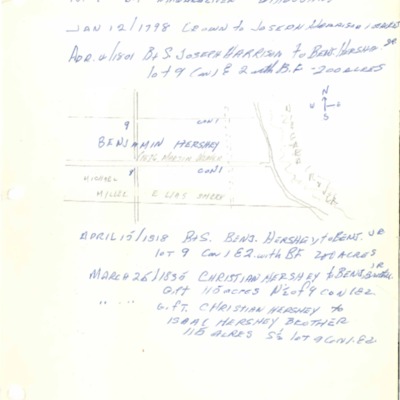 JAN 12/1798 CROWN to JOSEPH HARRISON
APR. 4/1801 B+S JOSEPH HARRISON to BENJ. HERSHEY SR
lot 9 Con 1 & 2 with B.F. - 200 ACRES
N
W
S
9
CON 1
BENJAMIN HERSHEY
MARTIN
CON 1
MICHAEL
MILLER
ELIAS
APRIL 15/1818 B+S. BENJ. HERSHEY to BENJ. JR
lot 9 Con 1 & 2. with BF 200 ACRES
MARCH 26/1836 CHRISTIAN HERSHEY to BENJ JR
Gift 115 acres N½ of 9 con 1 & 2.
" " " G.FT. CHRISTIAN HERSHEY to
ISAAC HERSHEY BROTHER
115 ACRES S½ lot 9 Con 1 & 2